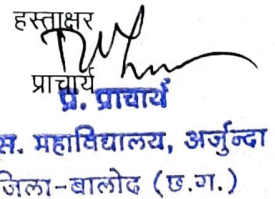 हस्ताक्षर
प्राचार्य
प्र. प्राचार्य
स. महाविद्यालय, अर्जुन्दा
जिला-बालोद (छ.ग.)